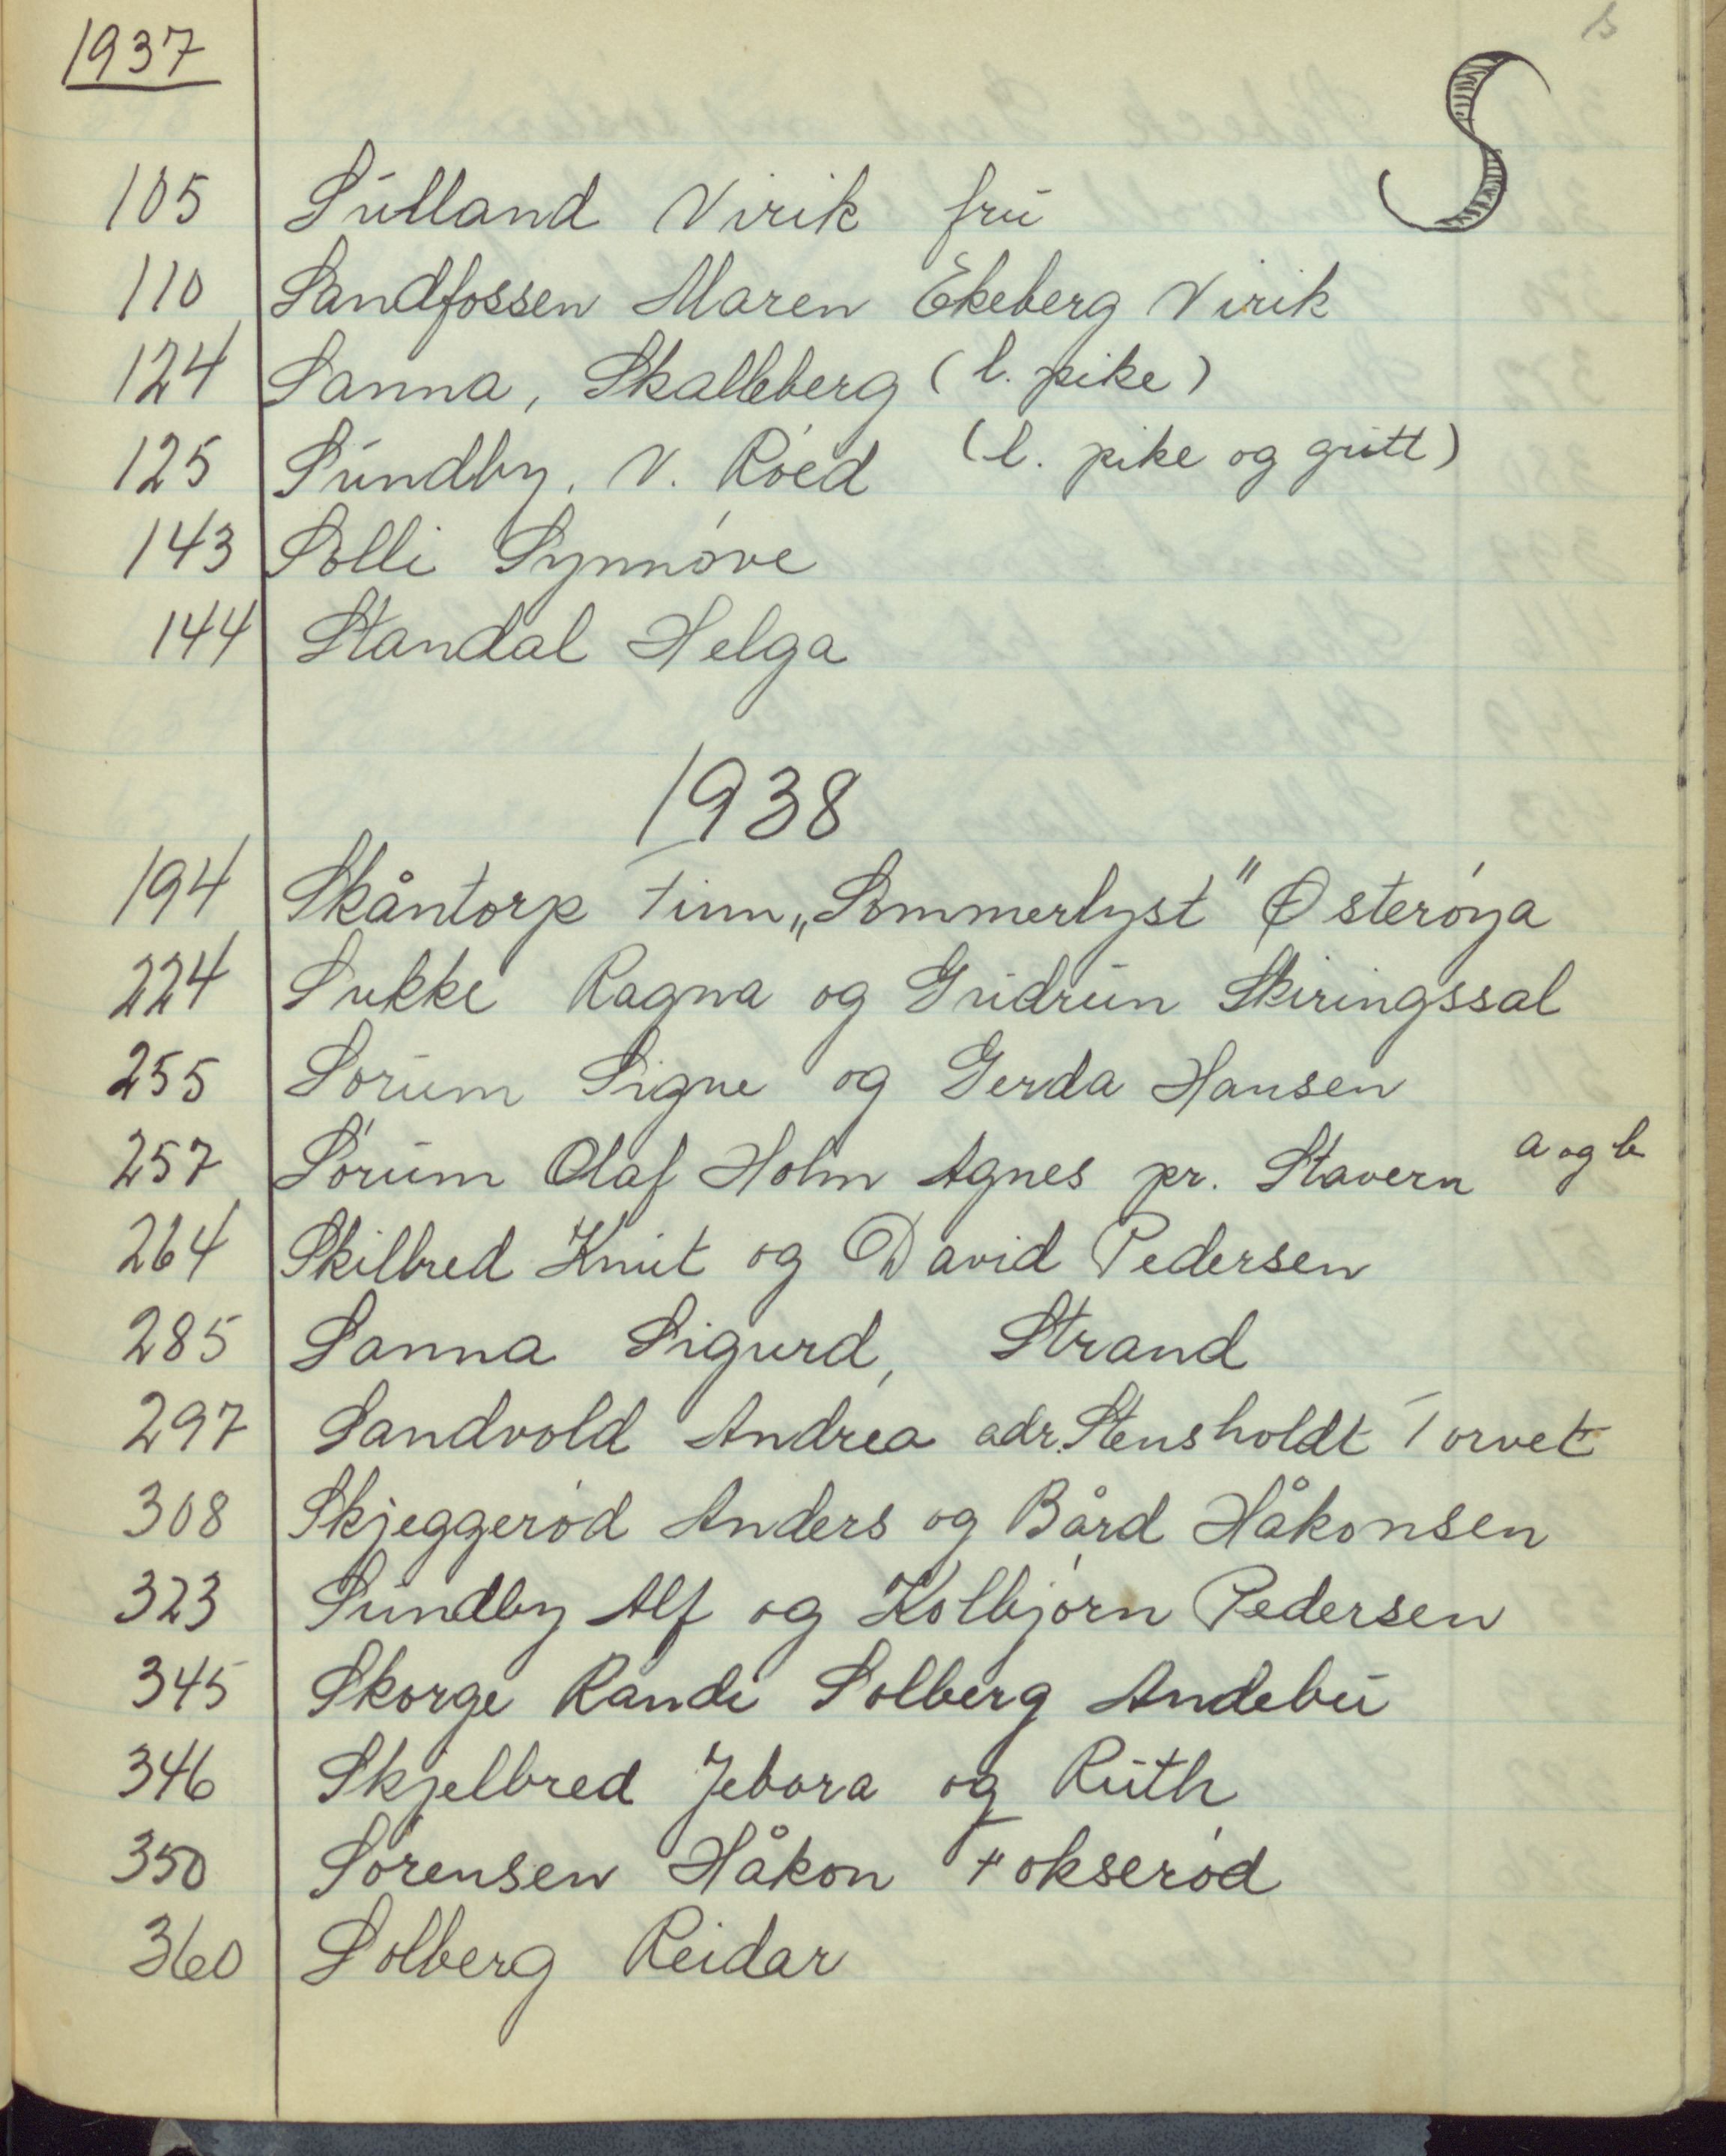 s
1937
S
105 Sulland Virik fru
110 Sandfossen Maren Ekeberg Virik
124 Sanna, Skalleberg (l. pike)
125 Sundby, V. Røed (l. pike og gutt)
143 Solli Synnøve
144 Standal Helga
1938
194 Skåntorp Finn „Sommerlyst" Østerøya
224 Sukke Ragna og Gudrun Skiringssal
255 Sørum Signe og Gerda Hansen
257 Sørum Olaf Holm Agnes pr. Stavern a og b
264 Skilbred Knut og David Pedersen
285 Sanna Sigurd, Strand
297 Sandvold Andrea adr. Stensholdt Torvet
308 Skjeggerød Anders og Bård Håkonsen
323 Sundby Alf og Kolbjørn Pedersen
345 Skorge Randi Solberg Andebu
346 Skjelbred Jebora og Ruth
350 Sørensen Håkon Fokserød
360 Solberg Reidar